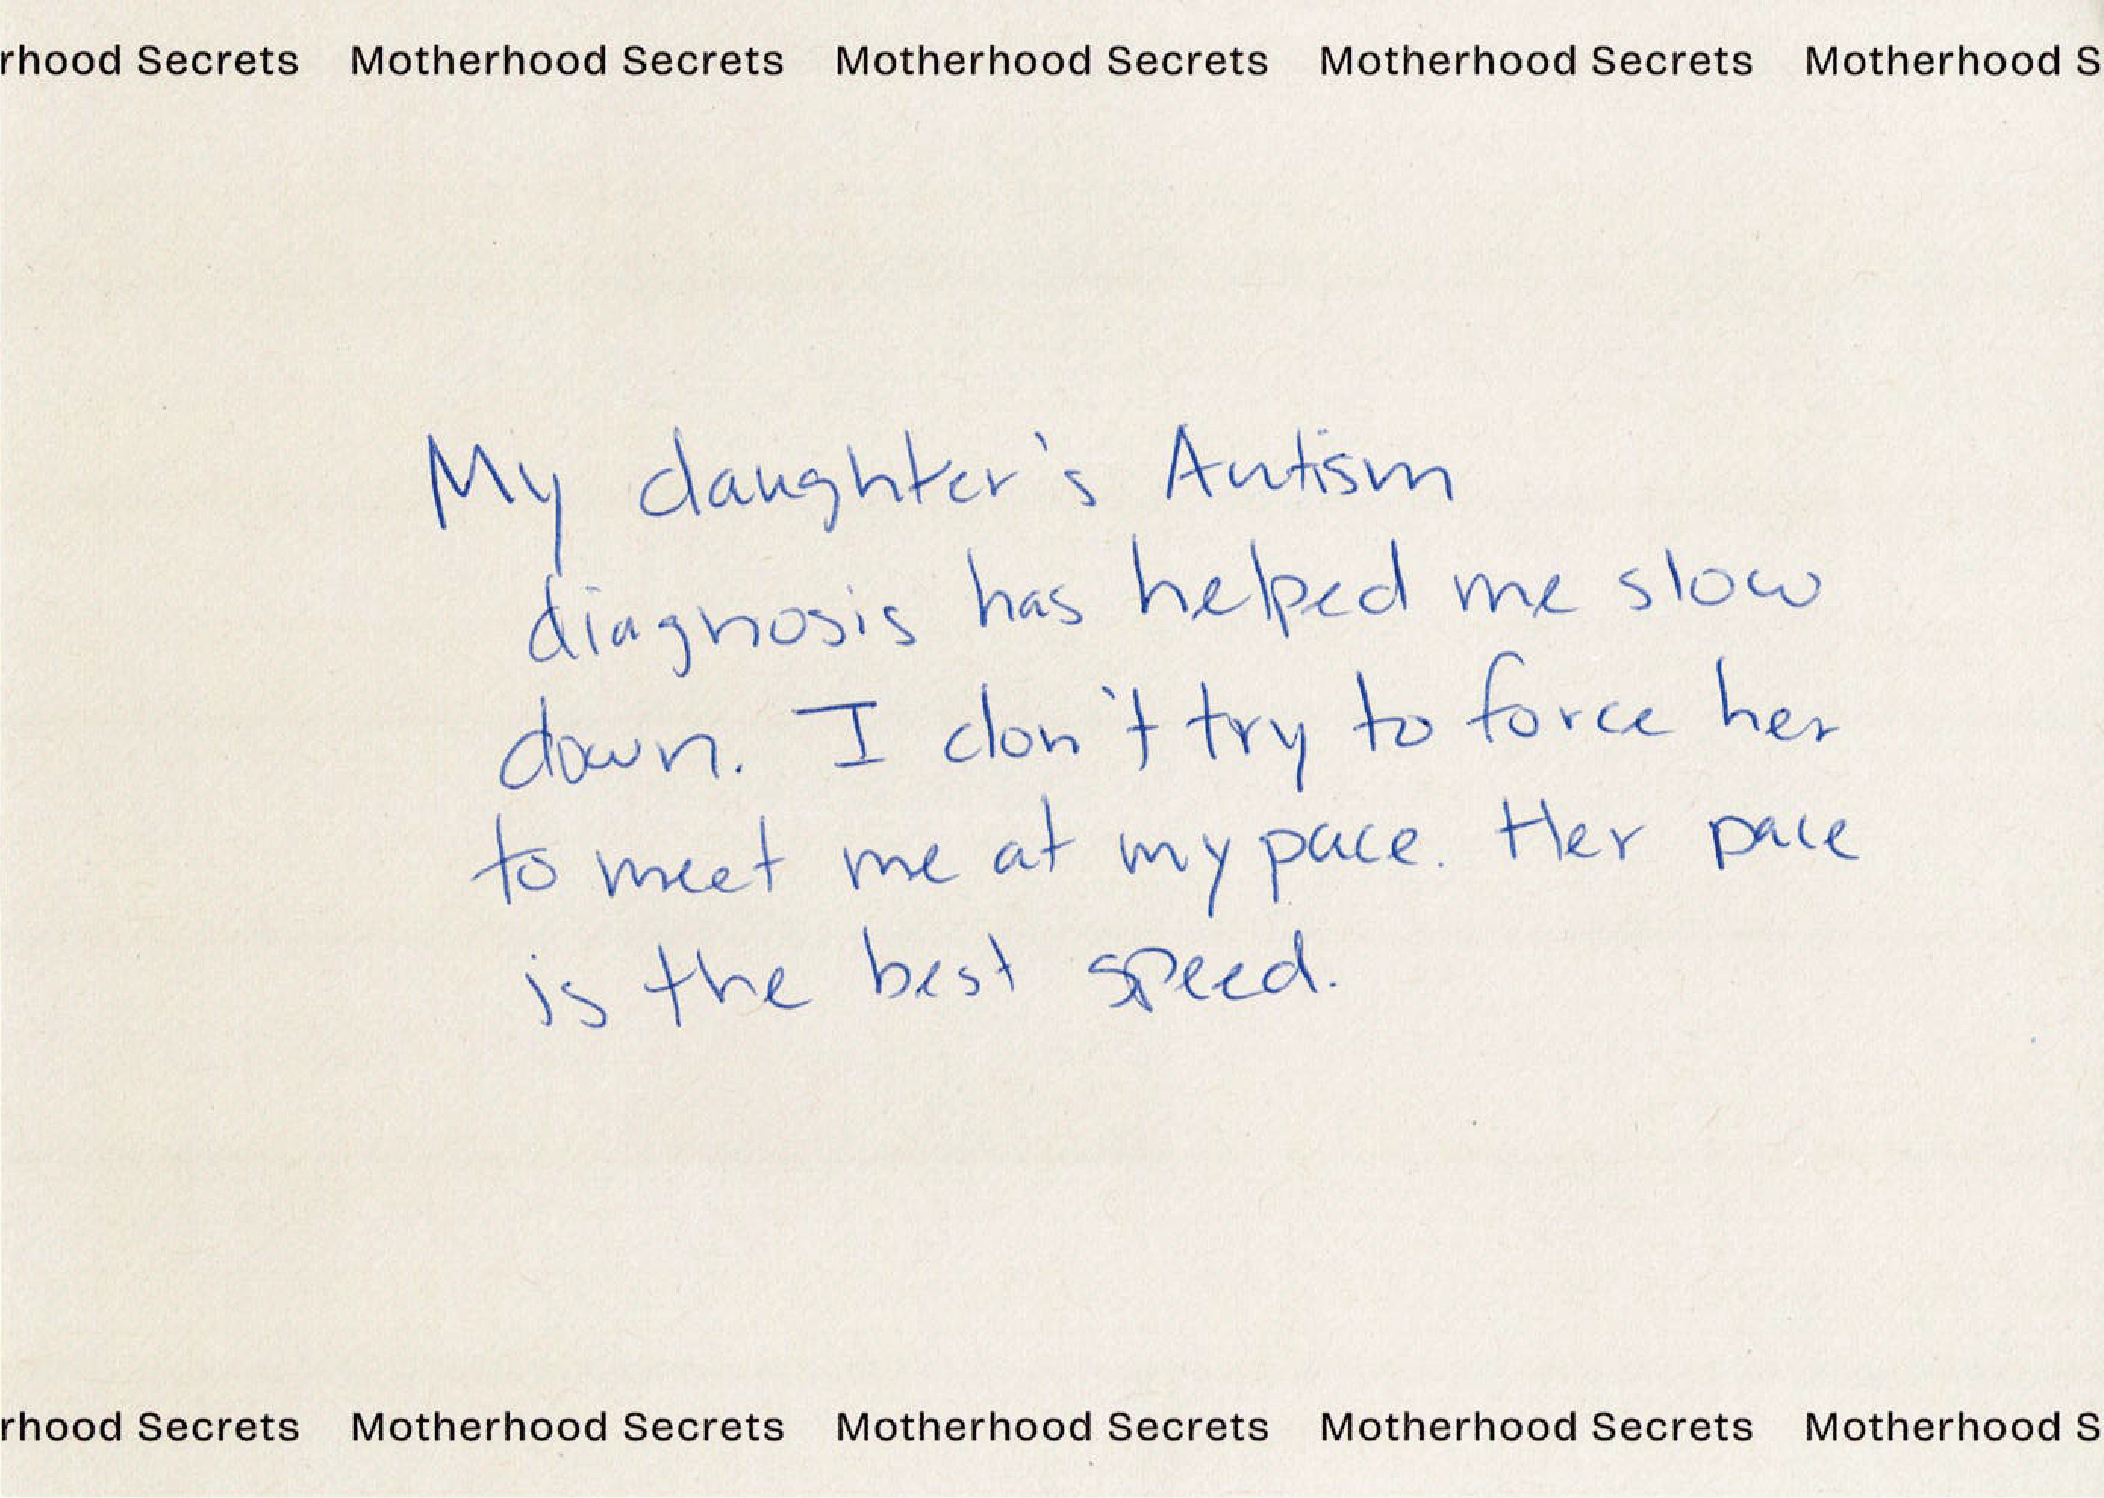 rhood Secrets Motherhood Secrets Motherhood Secrets Motherhood Secrets Motherhood S
My daughter's Autism
diagnosis has helped me slow
down. I don't try to force her
to meet me at my pace. Her pace
is the best speed.
rhood Secrets Motherhood Secrets Motherhood Secrets Motherhood Secrets Motherhood S